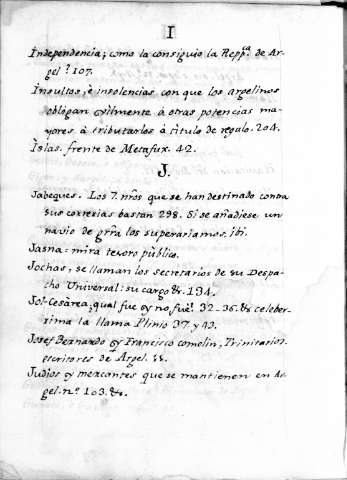 I
Independencia; como la consiguio la Repp.ca de Ar-
gel ? 107.
Insultos, è insolencias con que los argelinos
oblogan vilmente à otras potencias ma-
yores à tributarlos à titulo de regalo. 204.
Islas. frente de Metafux. 42.
J.
Jabeques. Los 7. nr̃os que se han destinado contra
sus correrias bastan 298. Si se añadiese un
navio de grr̃a los superariamos. ibi.
Jasna = mira tesoro publico.
Jochas, se llaman los secretarios de su Despa-
cho Universal: su cargo &. 134.
Jol-Cesàrea, qual fue y no fue. 32-36. & celeber-
rima la llama Plinio 37 y 43.
Josef Bernardo y Francisco Comelin, Trinitarios.
escritores de Argel.
Judios y mercantes que se mantienen en Ar-
gel. nº 103. &.